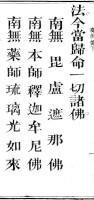 法今當歸命一切諸佛
南無毘盧遮那佛
南無本師釋迦牟尼佛
南無藥師琉璃光如來